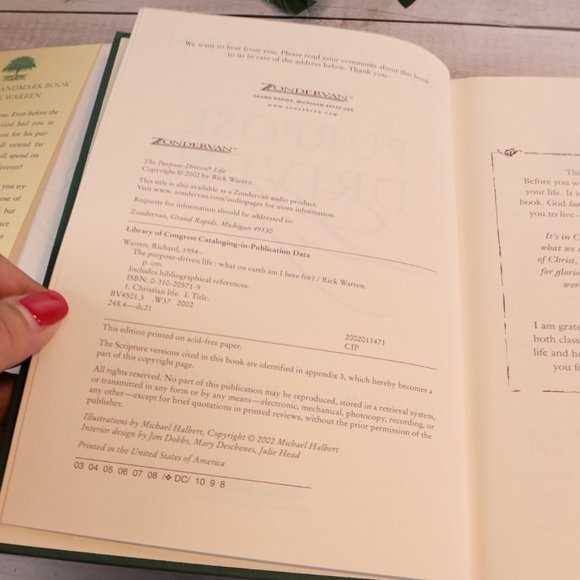 LANDMARK BOOK
WARREN
out. Even before the
God had you in
you for his pur-
will extend far
will spend on
forever!
you try
ose of
but
ace
We want to hear from you. Please send your comments about this book
to us in care of the address below. Thank you.
ZONDERVAN™
GRAND RAPIDS, MICHIGAN 49530 USA
WWW.ZONDERVAN.COM
ZONDERVAN™
The Purpose-Driven® Life
Copyright © 2002 by Rick Warren
This title is also available as a Zondervan audio product.
Visit www.zondervan.com/audiopages for more information.
Requests for information should be addressed to:
Zondervan, Grand Rapids, Michigan 49530
Library of Congress Cataloging-in-Publication Data
Warren, Richard, 1954–
The purpose-driven life : what on earth am I here for? / Rick Warren.
p. cm.
Includes bibliographical references.
ISBN: 0-310-20571-9
1. Christian life. I. Title.
BV4501.3 .W37 2002
248.4—dc21
2002011471
CIP
This edition printed on acid-free paper.
The Scripture versions cited in this book are identified in appendix 3, which hereby becomes a
part of this copyright page.
All rights reserved. No part of this publication may be reproduced, stored in a retrieval system,
or transmitted in any form or by any means—electronic, mechanical, photocopy, recording, or
any other—except for brief quotations in printed reviews, without the prior permission of the
publisher.
Illustrations by Michael Halbert, Copyright © 2002 Michael Halbert
Interior design by Jim Dobbs, Mary Deschenes, Julie Head
Printed in the United States of America
03 04 05 06 07 08 /❖ DC/ 10 9 8
This
Before you w
your life. It is
book. God
you to live
It's in C
what we
of Christ,
for glorio
wor
I am grate
both class
life and he
you fo